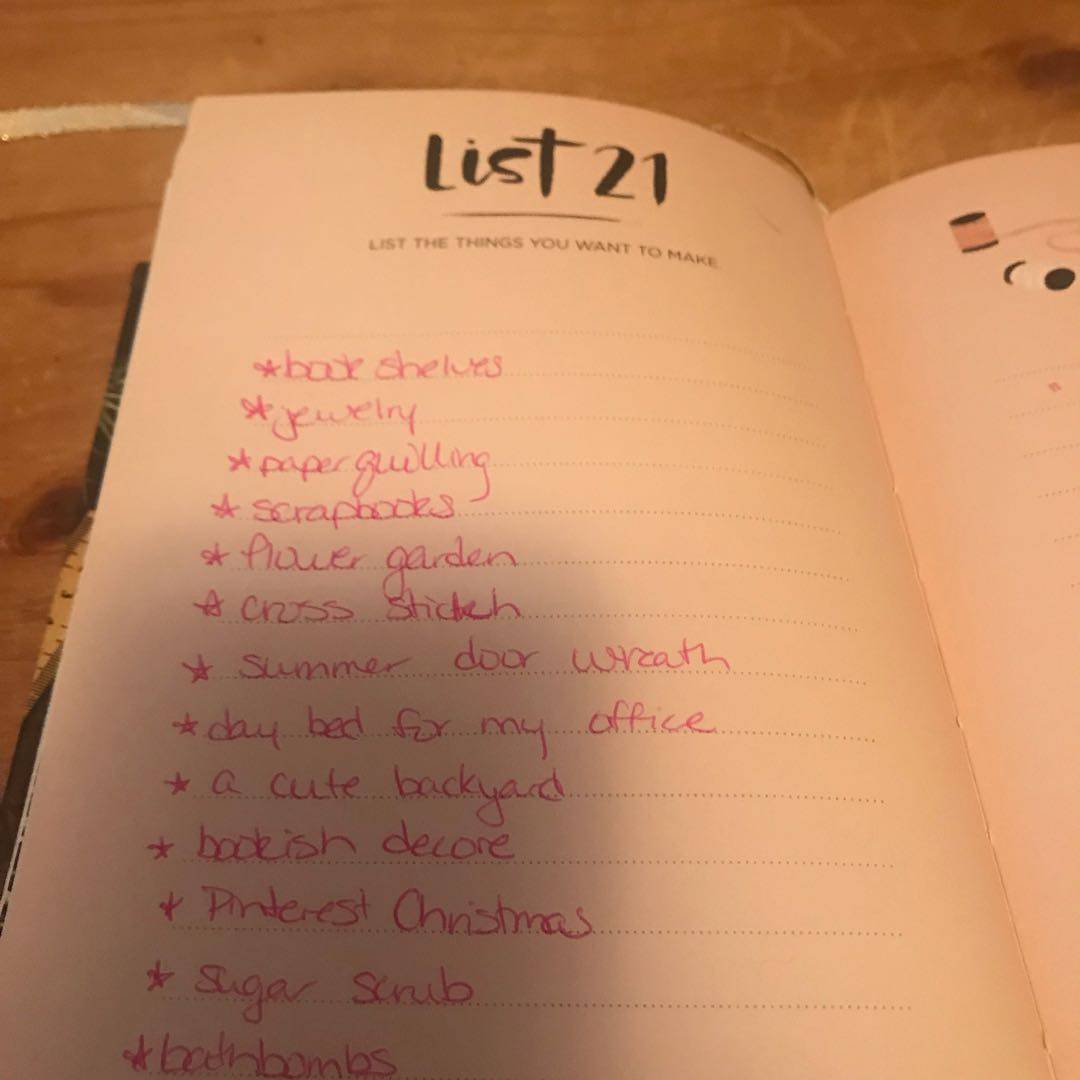 List 21
LIST THE THINGS YOU WANT TO MAKE
*book shelves
*jewelry
*paper quilling
*scrapbooks
*flower garden
*cross stictch
*summer door wreath
*day bed for my office
*a cute backyard
*bookish decore
*Pinterest Christmas
*sugar scrub
*bathbombs